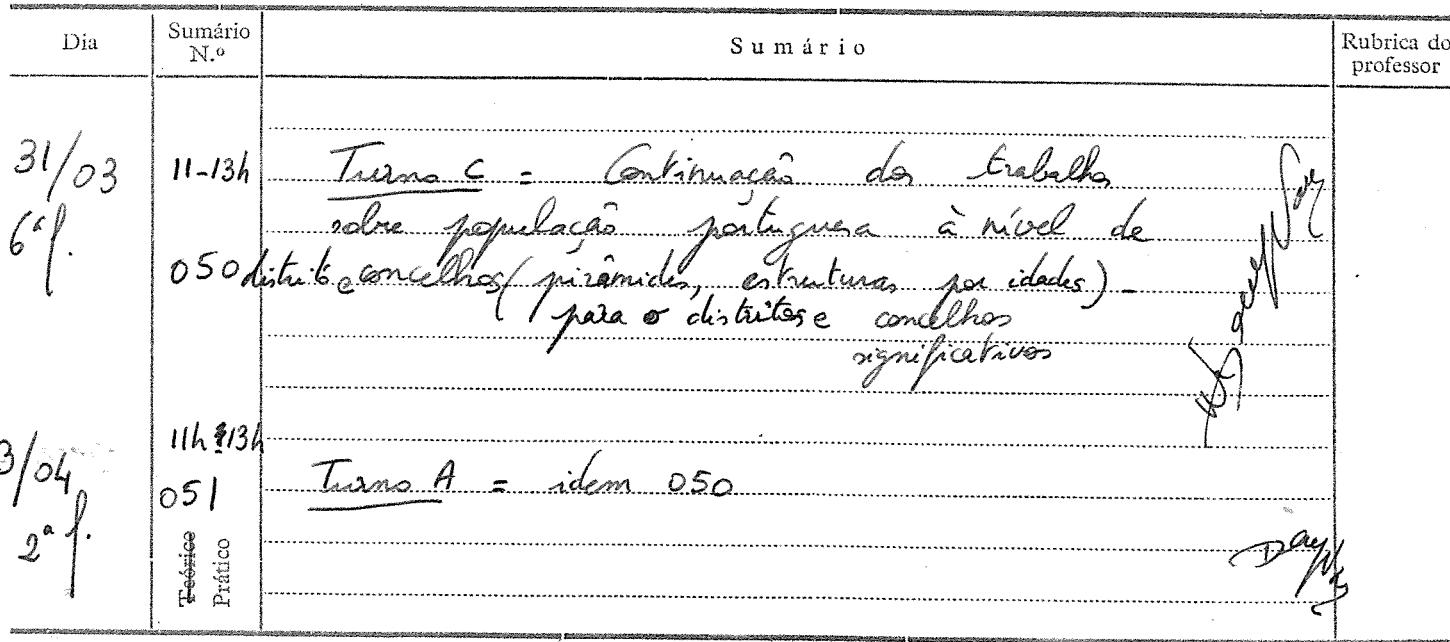 Dia Sumário N.º Sumário Rubrica do professor
31/03 11-13h Turno C = Continuação dos trabalhos
6ª f. sobre população portuguesa à nível de
050 distrito e concelhos (pirâmides, estruturas por idades) -
para o distritos e concelhos
significativos
3/04 11h 13h
051 Turno A = idem 050
2ª f.
Teórico
Prático